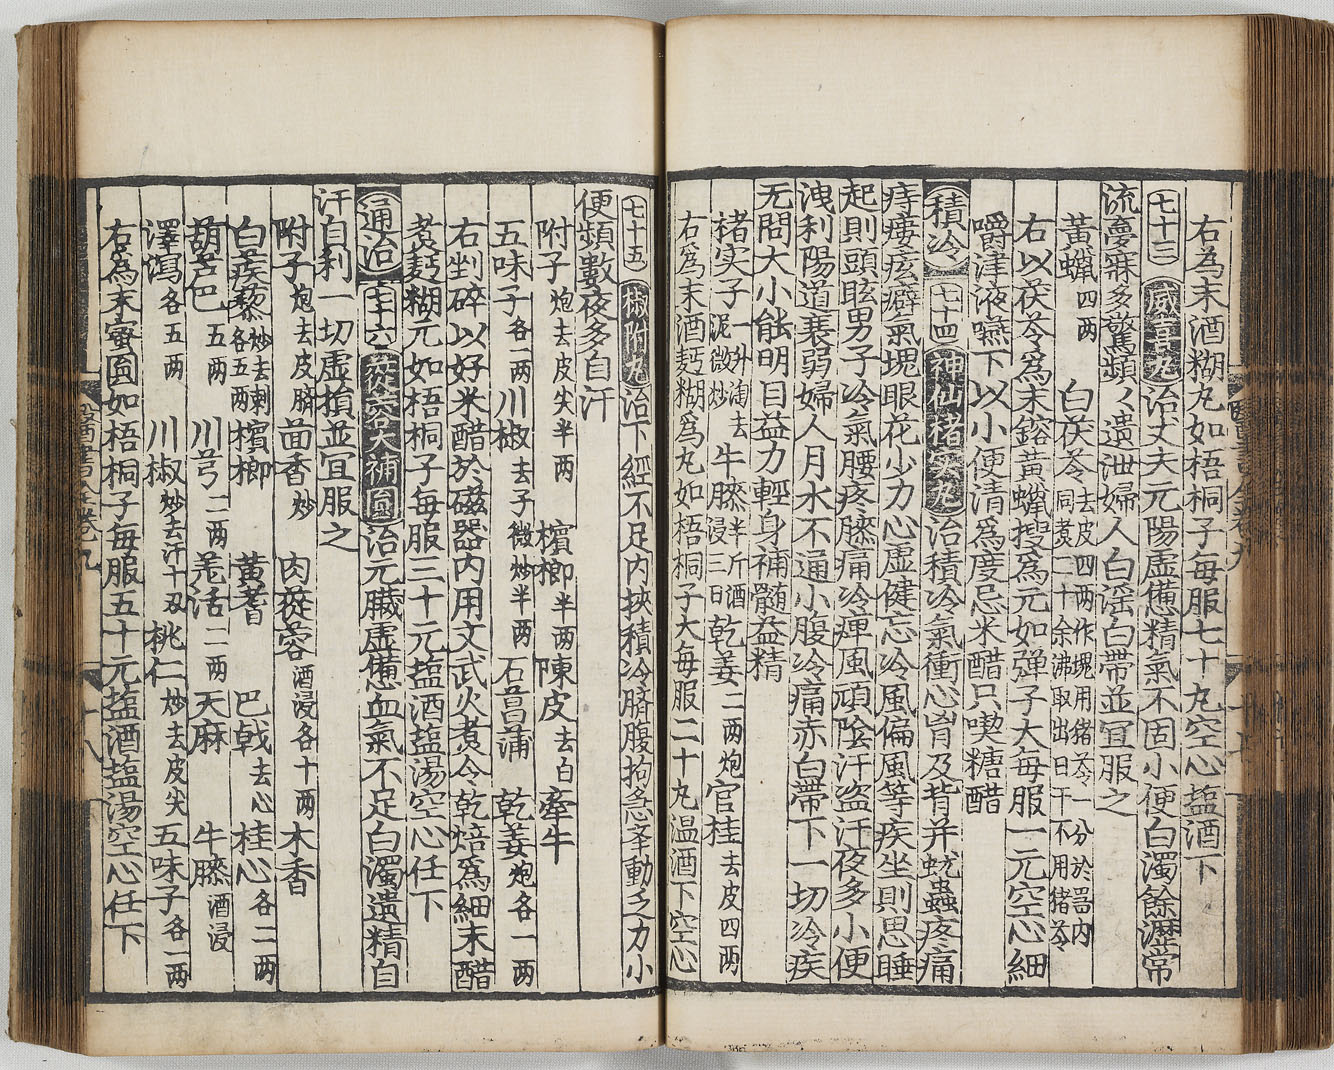 右為末酒糊丸如梧桐子每服七十丸空心塩酒下
七十三 威喜丸 治丈夫元陽虛憊精氣不固小便白濁餘瀝常
流夢寐多驚頻々遺泄婦人白淫白帶並宜服之
黃蠟四兩 白茯苓去皮四兩作塊用猪苓一分於噐内同煮二十余沸取出日干不用猪苓
右以茯苓為末鎔黃蠟搜為元如弹子大每服一元空心細
嚼津液嚥下以小便清為度忌米醋只喫糖醋
積冷 七十四 神仙楮实丸 治積冷氣衝心胷及背并蚘蟲疼痛
痔瘻痃癖氣塊眼花少力心虛健忘冷風偏風等疾坐則思睡
起則頭眩男子冷氣腰疼膝痛冷痺風頑陰汗盗汗夜多小便
洩利陽道衰弱婦人月水不通小腹冷痛赤白帶下一切冷疾
无問大小能明目益力輕身補髓益精
楮实子一升淘去泥微炒 牛膝半斤酒浸三日 乾姜二兩炮 官桂去皮四兩
右為末酒麪糊為丸如梧桐子大每服二十丸温酒下空心
七十五 椒附丸 治下經不足内挾積冷臍腹拘急举動乏力小
便頻數夜多自汗
附子炮去皮尖半兩 檳榔半兩 陳皮去白 牽牛
五味子各一兩 川椒去子微炒半兩 石菖蒲 乾姜炮各一兩
右剉碎以好米醋於磁器内用文武火煮令乾焙為細末醋
煮麪糊元如梧桐子每服三十元塩酒塩湯空心任下
通治 七十六 蓯蓉大補圓 治元臟虛憊血氣不足白濁遺精自
汗自利一切虛損並宜服之
附子炮去皮臍 茴香炒 肉蓯容酒浸各十兩 木香
白蒺藜炒去刺各五兩 檳榔 黃耆 巴戟去心 桂心各二兩
葫芦巴五兩 川芎二兩 羌活二兩 天麻 牛膝酒浸
澤瀉各五兩 川椒炒去汗十刄 桃仁炒去皮尖 五味子各一兩
右為末蜜圓如梧桐子每服五十元塩酒塩湯空心任下
卷九 十八